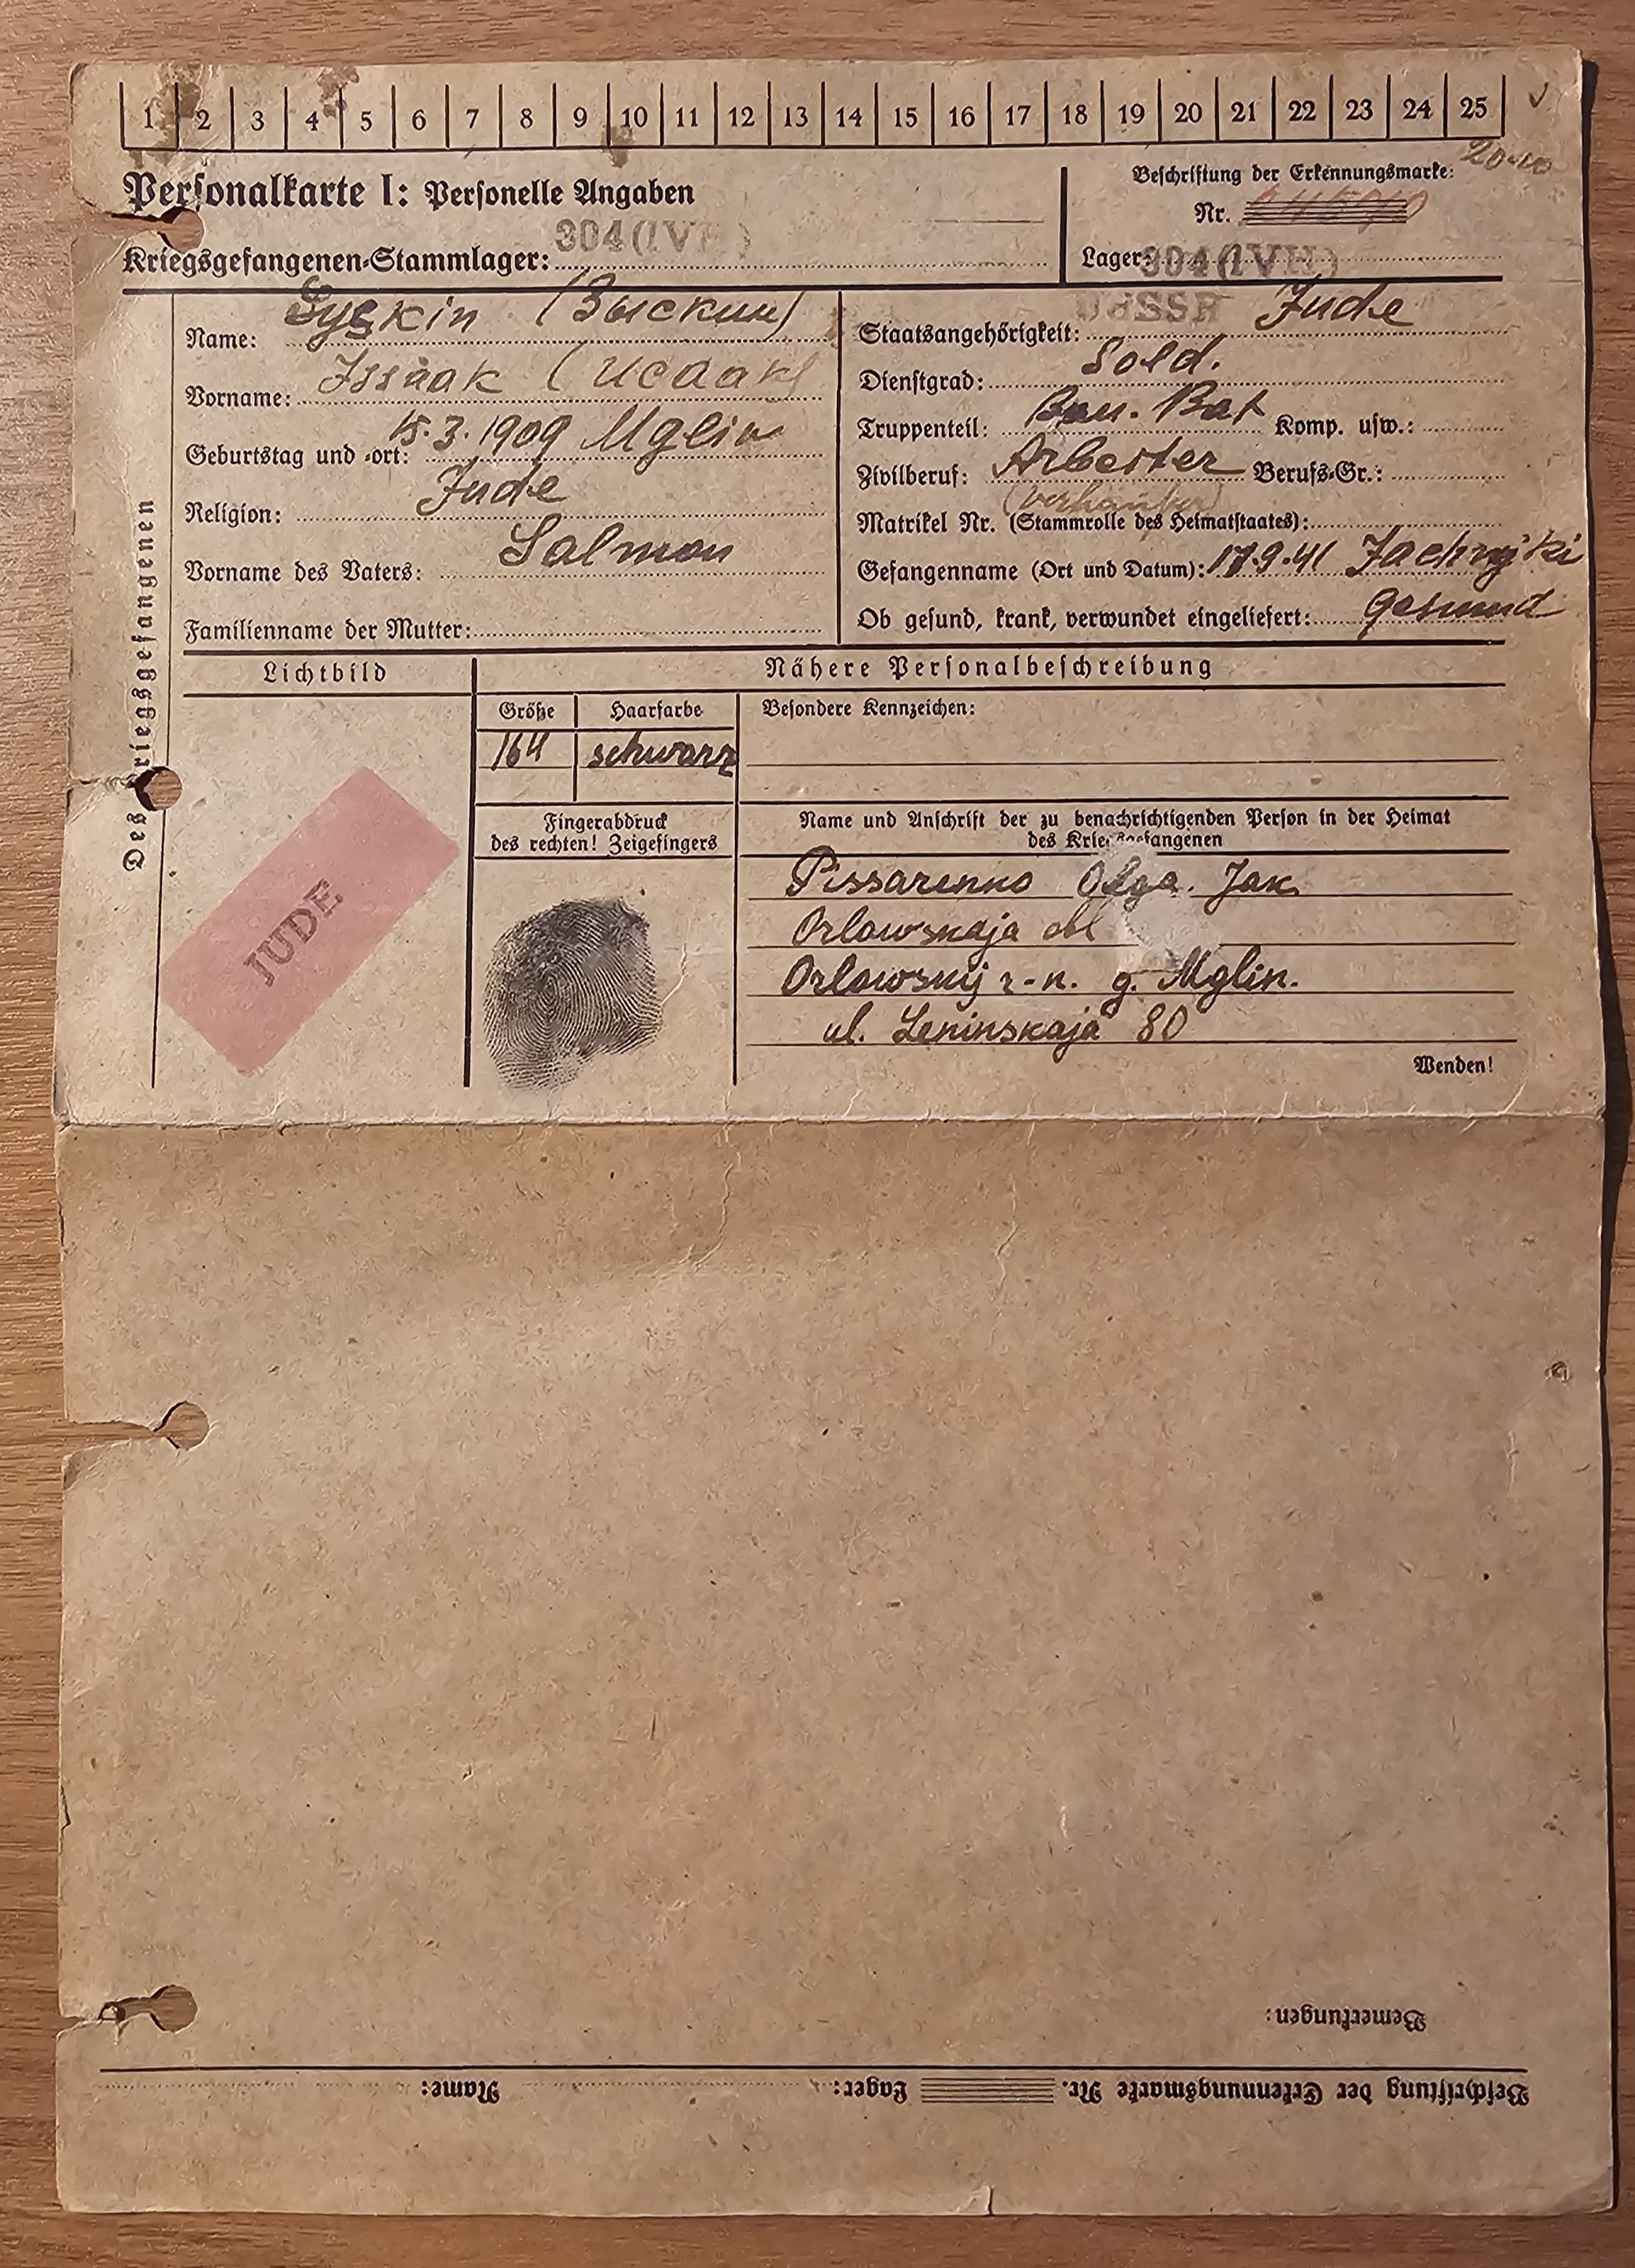 1 2 3 4 5 6 7 8 9 10 11 12 13 14 15 16 17 18 19 20 21 22 23 24 25
Personalkarte I: Personelle Angaben
Kriegsgefangenen-Stammlager: 304 (IV H)
Beschriftung der Erkennungsmarke:
Nr.
Lager: 304 (IV H)
Des Kriegsgefangenen
Name:
Vorname: Issaak (Исаак)
Geburtstag und -ort: 15.3.1909 Mglin
Religion: Jude
Vorname des Vaters: Salmon
Familienname der Mutter:
Staatsangehörigkeit: UdSSR Jude
Dienstgrad: Sold.
Truppenteil: Bau. Bat Komp. usw.:
Zivilberuf: Arbeiter Berufs-Gr.:
Matrikel Nr. (Stammrolle des Heimatstaates):
Gefangenname (Ort und Datum): 17.9.41
Ob gesund, krank, verwundet eingeliefert: gesund
Lichtbild
JUDE
Nähere Personalbeschreibung
Größe Haarfarbe
164 schwarz
Besondere Kennzeichen:
Fingerabdruck
des rechten! Zeigefingers
Name und Anschrift der zu benachrichtigenden Person in der Heimat
des Kriegsgefangenen
Pissarenko Olga. Jak
Orlowskaja obl
Orlowskij r-n. g. Mglin.
ul. Leninskaja 80
Wenden!
Bemerkungen:
Beschriftung der Erkennungsmarke Nr. Lager: Name: